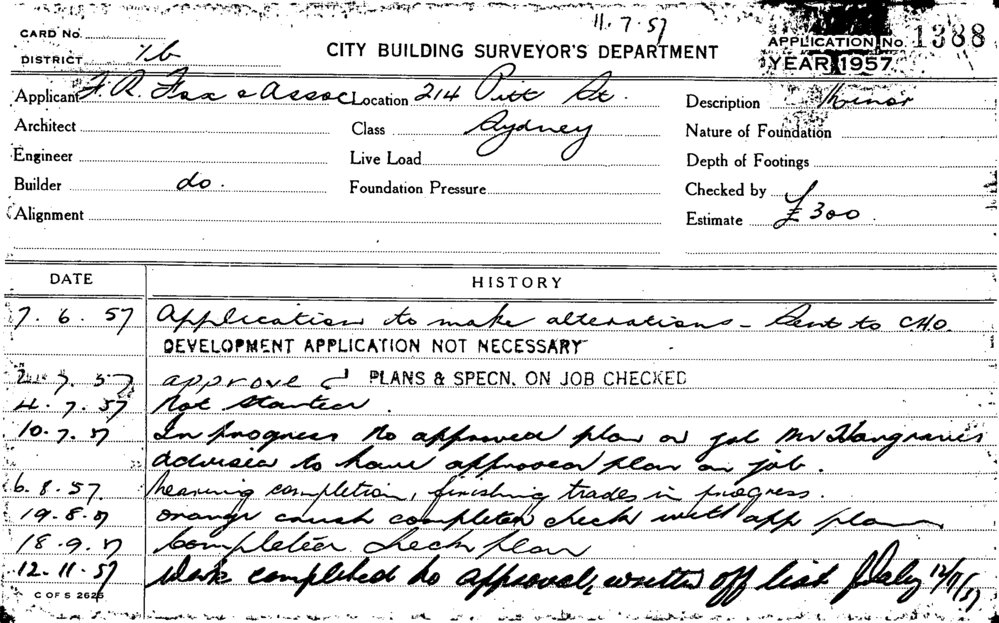 11.7.57
CARD No.
DISTRICT 1b
CITY BUILDING SURVEYOR'S DEPARTMENT
APPLICATION No. 1388
YEAR 1957
Applicant F. R. Fox & Assoc Location 214 Pitt St. Description Minor
Architect Class Sydney Nature of Foundation
Engineer Live Load Depth of Footings
Builder do. Foundation Pressure Checked by
Alignment Estimate £300
DATE HISTORY
7.6.57 Application to make alterations - Sent to CHO.
DEVELOPMENT APPLICATION NOT NECESSARY
2.7.57 approved PLANS & SPECN. ON JOB CHECKED
4.7.57 Not started.
10.7.57 In progress No approved plan on job Mr Hargraves
advised to have approved plan on job.
6.8.57. nearing completion, finishing trades in progress.
19.8.57 orange crush completed check with app plan
18.9.57 Completed check plan
12.11.57 Work completed to approval, written off list J Daly 12/11/57
C OF S 2625